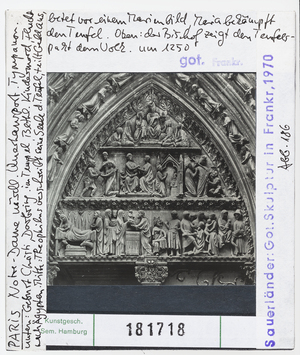 betet vor einem Marienbild Maria bekämpft
den Teufel. Oben: der Bischof zeigt den Teufels-
pakt dem Volk. um 1250
got. Frankr.
PARIS Notre-Dame nördl. Querhausport. Tympanon
unten: Geburt Christi, Darbring. im Tempel, Bethl. Kindermord, Flucht
nach Ägypten. Mitte: Theophilus
Abb. 186
Sauerländer: Got. Skulptur in Frankr. 1970
Kunstgesch.
Sem. Hamburg
181718